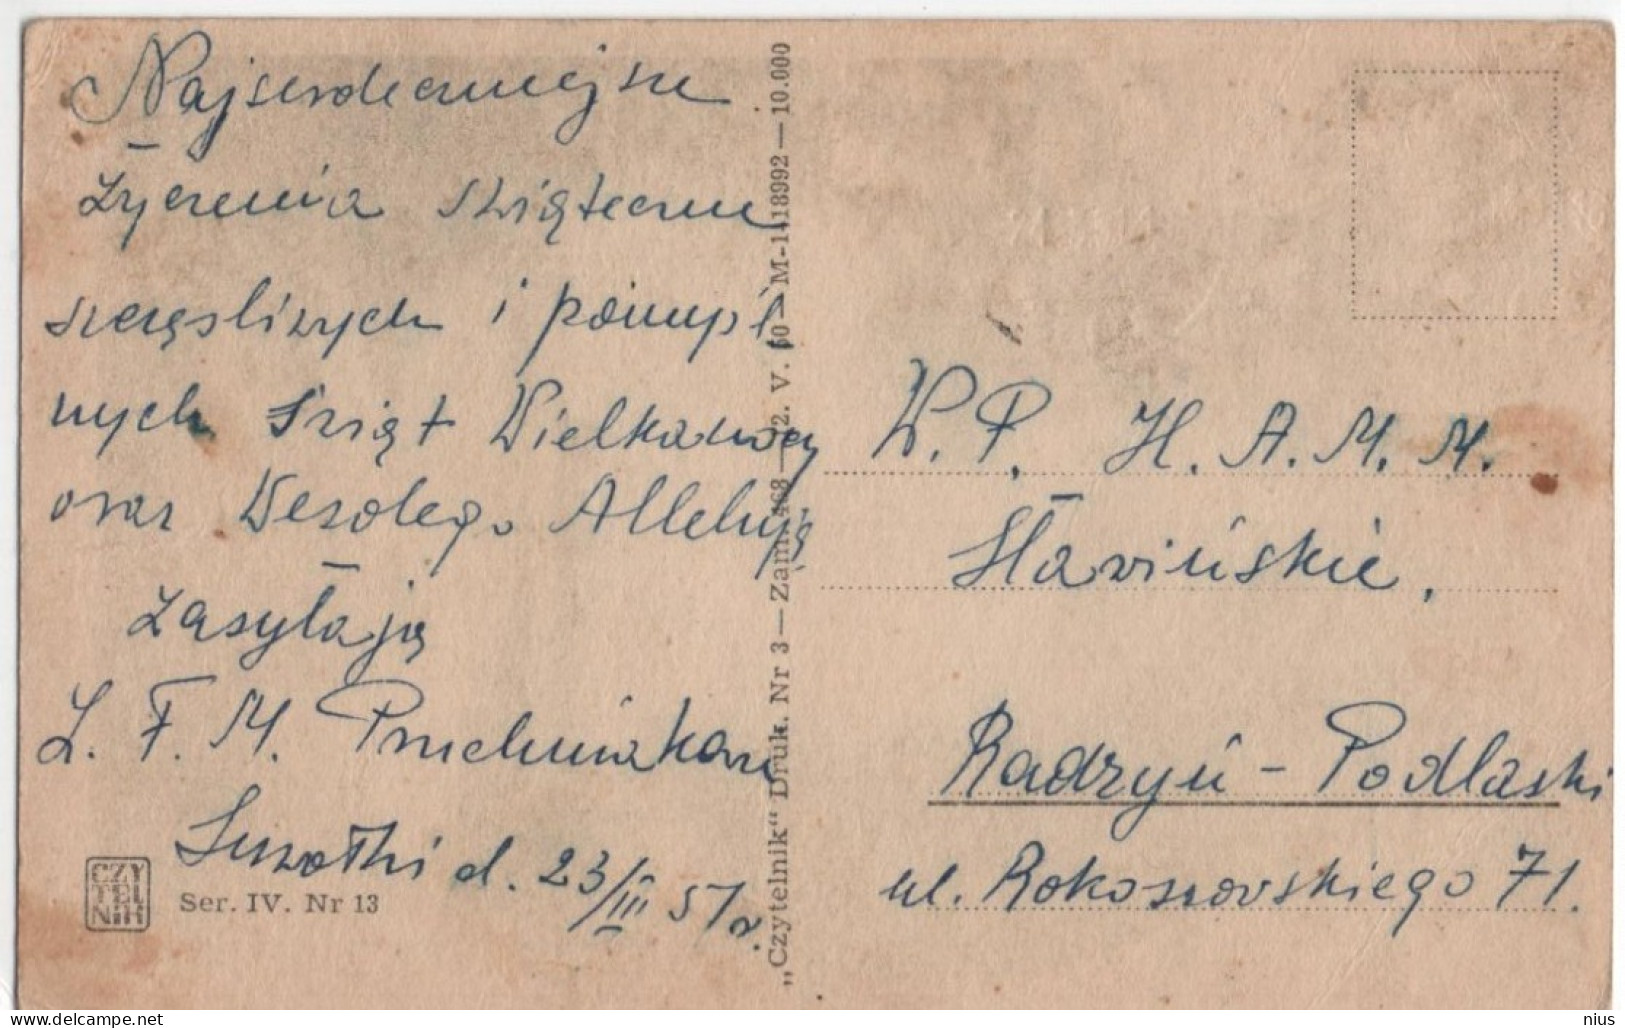 Najserdeczniejsze
życzenia świąteczne
szczęśliwych i pomyśl
nych Świąt Wielkanocy
oraz Wesołego Alleluja
zasyłają
L. F. M.
Suwałki d. 23/III 51 r.
CZY
TEL
NIK
Ser. IV. Nr 13
„Czytelnik“ Druk. Nr 3 — Zam. 468 — 2. V. 50 — M-1-18992 — 10.000
W. P. H. A. M. M.
Sławińskie,
Radzyń - Podlaski
ul. Rokossovskiego 71.
www.delcampe.net
nius